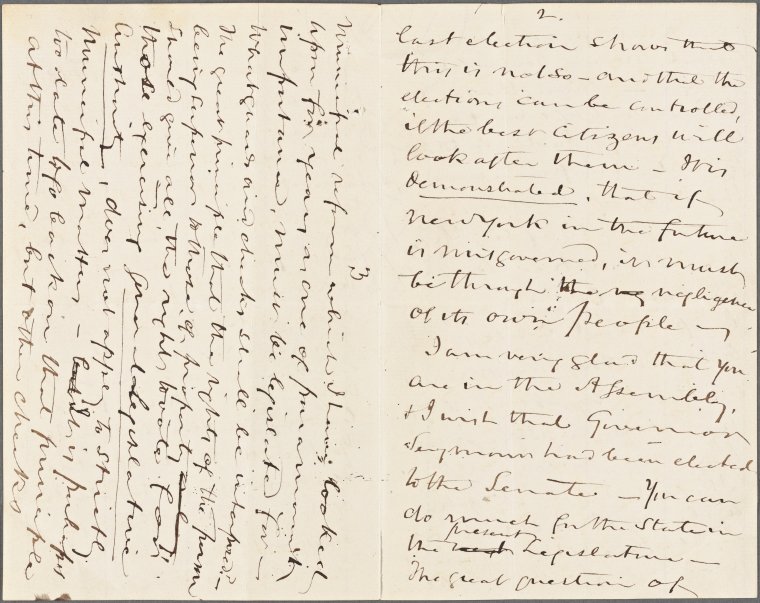 2.
last election shows that
this is not so - and that the
elections can be controlled,
if the best citizens will
look after them - It is
demonstrated, that if
New York in the future
is misgoverned, it must
be through the negligence
of its own people -
I am very glad that you
are in the Assembly,
& I wish that Governor
Seymour had been elected
to the Senate - You can
do much for the State in
the present Legislature -
The great question of
3
Municipal reform which I have looked
upon for years as one of paramount
importance, must be legislated for -
What guards and checks shall be interposed -
The great principle that the rights of the person
being superior to those of property
should give all, the right to vote for
those exercising general legislative
authority, does not apply to strictly
Municipal matters - it is perhaps
too late to go back on that principle
at this time, but other checks